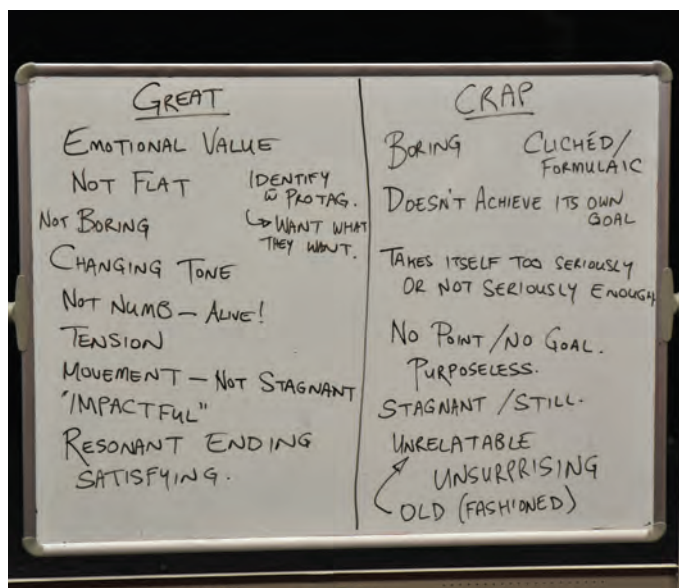 GREAT
EMOTIONAL VALUE
NOT FLAT
IDENTIFY
w̄ PROTAG.
↳ WANT WHAT
THEY WANT.
NOT BORING
CHANGING TONE
NOT NUMB – ALIVE!
TENSION
MOVEMENT – NOT STAGNANT
"IMPACTFUL"
RESONANT ENDING
SATISFYING.
CRAP
BORING
CLICHÉD/
FORMULAIC
DOESN'T ACHIEVE ITS OWN
GOAL
TAKES ITSELF TOO SERIOUSLY
OR NOT SERIOUSLY ENOUGH
NO POINT/NO GOAL.
PURPOSELESS.
STAGNANT/STILL.
UNRELATABLE
UNSURPRISING
OLD (FASHIONED)